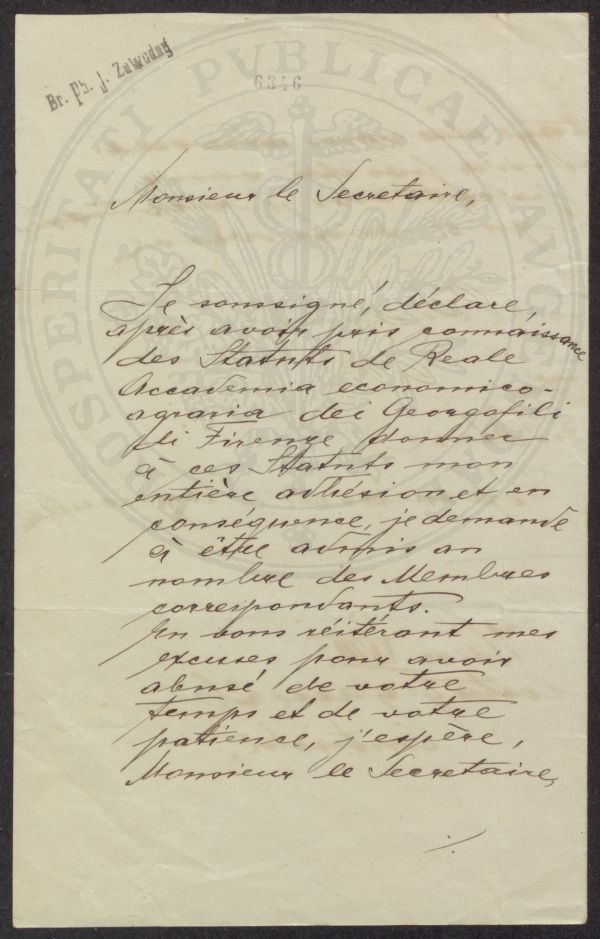 Br. Ph. J. Zawodny
6346
PROSPERITATI PVBLICAE AVGENDAE
Monsieur le Secretaire,
Je soussigné, déclare,
après avoir pris connaissance
des Statuts de Reale
Accademia economico-
agraria dei Georgofili
di Firenze donner
à ces Statuts mon
entière adhésion et en
conséquence, je demande
à être admis au
nombre des Membres
correspondants.
En vous réitérant mes
excuses pour avoir
abusé de votre
temps et de votre
patience, j'espère,
Monsieur le Secretaire,
./.